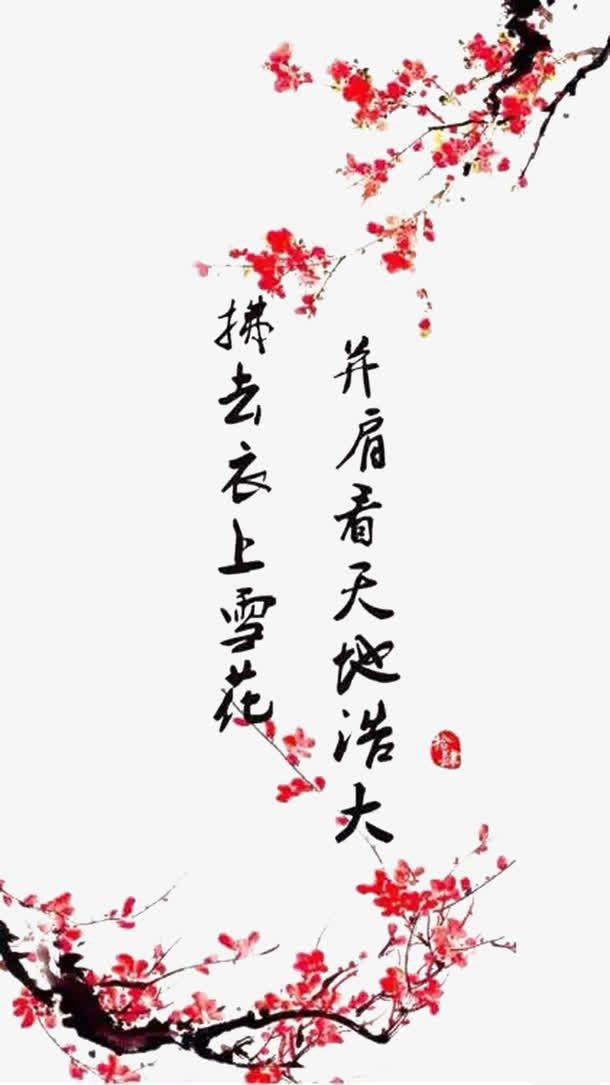 拂去衣上雪花
并肩看天地浩大